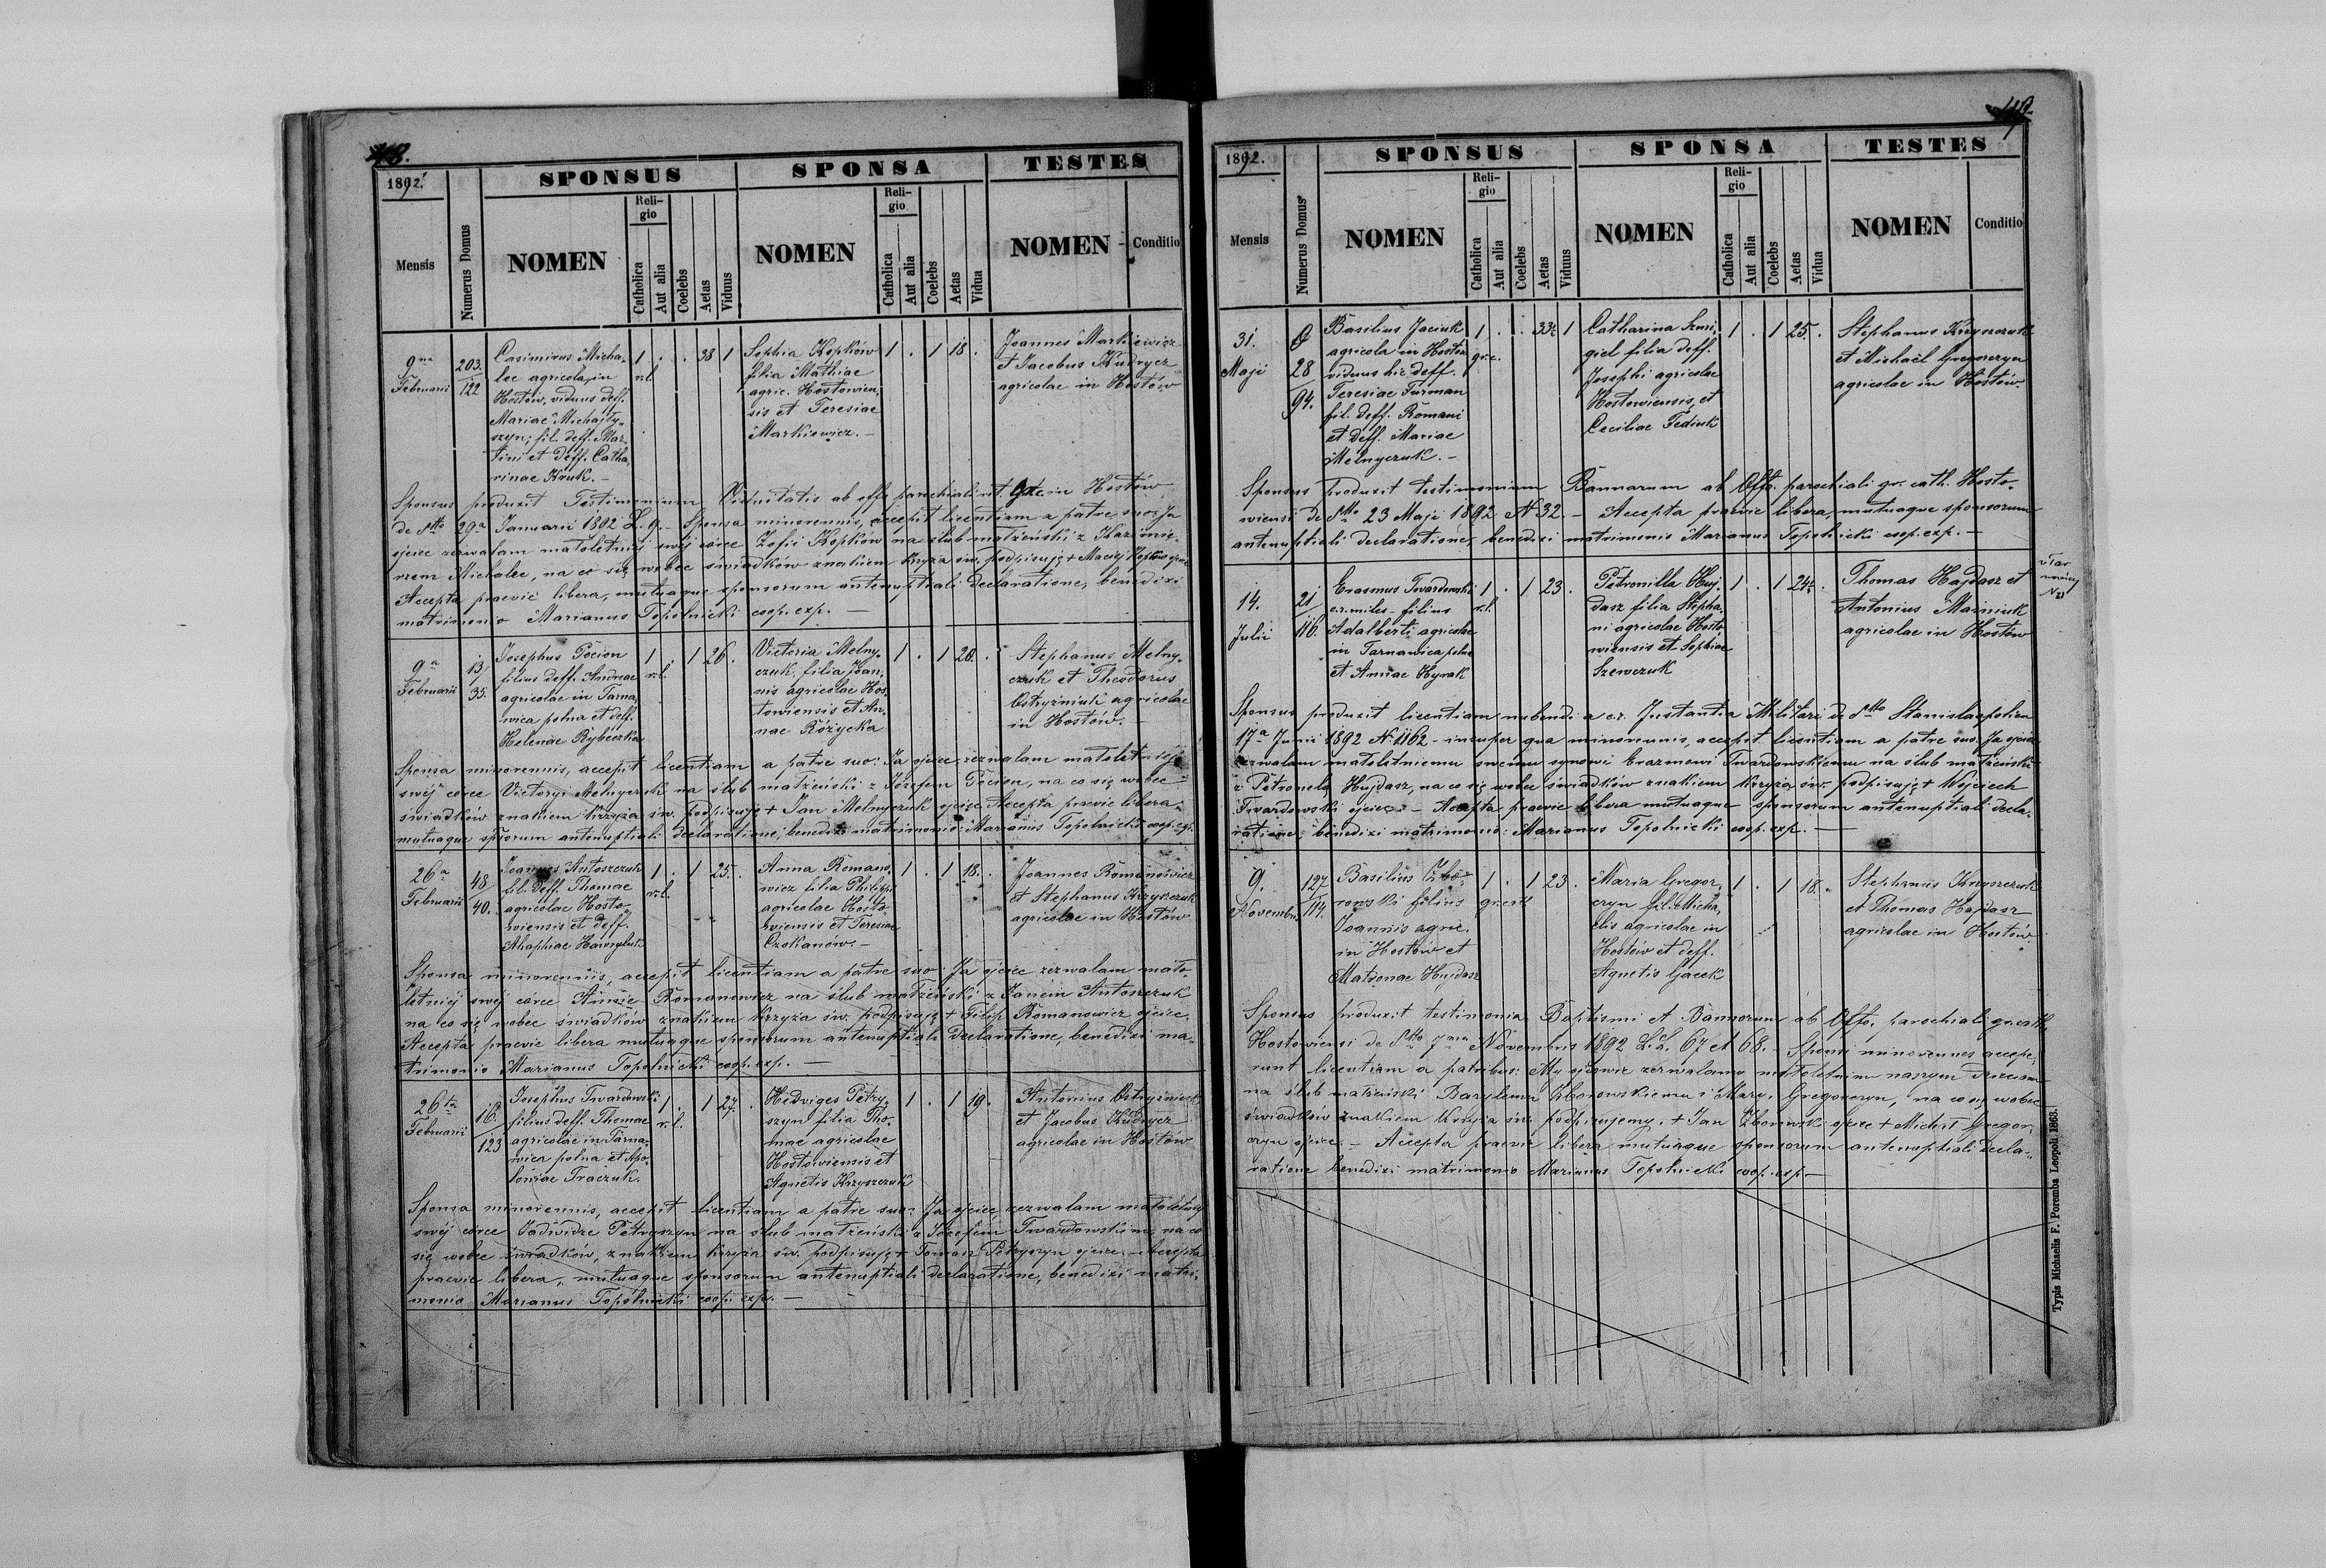 48.
1892.
SPONSUS
SPONSA
TESTES
Mensis
Numerus Domus
NOMEN
Religio
Catholica
Aut alia
Coelebs
Aetas
Viduus
NOMEN
Religio
Catholica
Aut alia
Coelebs
Aetas
Vidua
NOMEN
Conditio
9na
Februarii
203.
122
Casimirus Micha-
lec agricola in
Hostów, viduus deff.
Mariae Michajły-
szyn; fil. deff. Mar-
tini et deff. Catha-
rinae Kruk. –
1 . . 38 1
r.l.
Sophia Kopków
filia Mathiae
agric. Hostowien-
sis et Teresiae
Markiewicz. –
1 . 1 18 .
Joannes Markiewicz
et Jacobus Kudrycz
agricolae in Hostów
Sponsus produxit Testimonium Viduitatis ab offo parochiali in Hostów
de dtto 29a Januarii 1892 L. 9. – Sponsa minorennis, accepit licentiam a patre suo: Ja
ojciec zezwalam małoletniéj swéj córce Zofii Kopków na ślub małżeński z Kazimie-
rzem Michalec, na co się wobec świadków znakiem krzyża św. podpisuję + Maciéj Kopków ojciec
Accepta praevie libera, mutuaque sponsorum antenuptiali declaratione, benedixi
matrimonio Marianus Topolnicki coop. exp. –
9a
Februarii
13
35.
Josephus Pocion
filius deff. Andreae
agricolae in Tarna-
wica polna et deff.
Helenae Rybeczka
1 . 1 26 .
r.l.
Victoria Melny-
czuk, filia Joan-
nis agricolae Hos-
towiensis et An-
nae Różycka
1 . 1 20 .
Stephanus Melny-
czuk et Theodorus
Ostryżniuk agricolae
in Hostów. –
Sponsa minorennis, accepit licentiam a patre suo: Ja ojciec zezwalam małoletniéj
swéj córce Victoryi Melnyczuk na ślub małżeński z Józefem Pocion, na co się wobec
świadków znakiem krzyża św. podpisuję + Jan Melnyczuk ojciec. Accepta praevie libera,
mutuaque spsorum antenuptiali declaratione, benedixi matrimonio: Marianus Topolnicki coop. exp.
26a
Februarii
48
40.
Joannes Antoszczuk
fil. deff. Thomae
agricolae Hosto-
wiensis et deff.
Ahaphiae Hawryluk
1 . 1 25 .
r.l.
Anna Romano-
wicz filia Philippi
agricolae Hosto-
wiensis et Teresiae
Czokanów. –
1 . 1 18 .
Joannes Romanowicz
et Stephanus Kryszczuk
agricolae in Hostów
Sponsa minorennis, accepit licentiam a patre suo: Ja ojciec zezwalam mało
letniéj swéj córce Annie Romanowicz na ślub małżeński z Janem Antoszczuk
na co się wobec świadków znakiem krzyża św. podpisuję + Filip Romanowicz ojciec.
Accepta praevie libera mutuaque sponsorum antenuptiali declaratione, benedixi ma-
trimonio Marianus Topolnicki coop. exp. –
26ta
Februarii
16
123
Josephus Twardowski
filius deff. Thomae
agricolae in Tarna-
wica polna et Apo-
loniae Traczuk.
1 . 1 27 .
r.l.
Hedviges Petry-
szyn filia Tho-
mae agricolae
Hostowiensis et
Agnetis Kryszczuk
1 . 1 19 .
Antonius Ostryżniuk
et Jacobus Kudrycz
agricolae in Hostów
Sponsa minorennis, accepit licentiam a patre suo: Ja ojciec zezwalam małoletniéj
swéj córce Jadwidze Petryszyn na ślub małżeński z Józefem Twardowskim, na co
się wobec świadków, znakiem krzyża św. podpisuję + Tomasz Petryszyn ojciec. – Accepta
praevie libera, mutuaque sponsorum antenuptiali declaratione, benedixi matri-
monio Marianus Topolnicki coop. exp. –
49.
1892.
SPONSUS
SPONSA
TESTES
Mensis
Numerus Domus
NOMEN
Religio
Catholica
Aut alia
Coelebs
Aetas
Viduus
NOMEN
Religio
Catholica
Aut alia
Coelebs
Aetas
Vidua
NOMEN
Conditio
31.
Maji
28
94.
Basilius Jaciuk
agricola in Hostów
viduus hic deff.
Teresiae Furman
fil. deff. Romani
et deff. Mariae
Melnyczuk. –
1 . . 33½ 1
gr.c.
Catharina Szmi-
giel filia deff.
Josephi agricolae
Hostowiensis, et
Ceciliae Fediuk
1 . 1 25 .
Stephanus Kryszczuk
et Michaël Gregorczyn
agricolae in Hostów.
Sponsus produxit testimonium Bannorum ab Offo. parochiali gr. cath. Hosto-
wiensi de dtto 23 Maji 1892 N 32. – Accepta praevie libera, mutuaque sponsorum
antenuptiali declaratione, benedixi matrimonio Marianus Topolnicki coop. exp. –
14.
Julii
21
116.
Erasmus Twardowski
c.r. miles – filius
Adalberti agricolae
in Tarnawica polna
et Annae Hynak
1 . 1 23 .
r.l.
Petronilla Huj-
dasz filia Stepha-
ni agricolae Hosto
wiensis et Sophiae
Szewczuk
1 . 1 24½ .
Thomas Hajdasz et
Antonius Masniuk
agricolae in Hostów
Sponsus produxit licentiam nubendi a c.r. Instantia Militari de dtto Stanislaopolien
17a Junii 1892 N 1162 – insuper qua minorennis, accepit licentiam a patre suo: Ja ojciec
zezwalam małoletniemu swemu synowi Erazmowi Twardowskiemu na ślub małżeński
z Petronelą Hujdasz, na co się wobec świadków znakiem krzyża św. podpisuję + Wojciech
Twardowski ojciec. – Accepta praevie libera mutuaque sponsorum antenuptiali decla-
ratione, benedixi matrimonio: Marianus Topolnicki coop. exp. –
9.
Novembris
127
114.
Basilius Zbo-
rowski filius
Joannis agric.
in Hostów et
Matronae Hujdasz
1 . 1 23 .
gr.c.
Maria Gregor-
czyn fil. Micha-
elis agricolae in
Hostów et deff.
Agnetis Gacek
1 . 1 18 .
Stephanus Kryszczuk
et Thomas Hajdasz
agricolae in Hostów.
Sponsus produxit testimonia Baptismi et Bannorum ab Offo. parochiali gr. cath.
Hostowiensi de dtto 7ma Novembris 1892 L.L. 67 et 68. – Sponsi minorennes accepe-
runt licentiam a patribus: My ojcowie zezwalamy małoletnim naszym dzieciom
na ślub małżeński Bazylemu Zborowskiemu i Maryi Gregorczyn, na co się wobec
świadków znakiem krzyża św. podpisujemy. + Jan Zborowski ojciec + Michał Gregor-
czyn ojciec. – Accepta praevie libera mutuaque sponsorum antenuptiali decla-
ratione benedixi matrimonio Marianus Topolnicki coop. exp. –
Typis Michaelis F. Poremba Leopoli 1863.